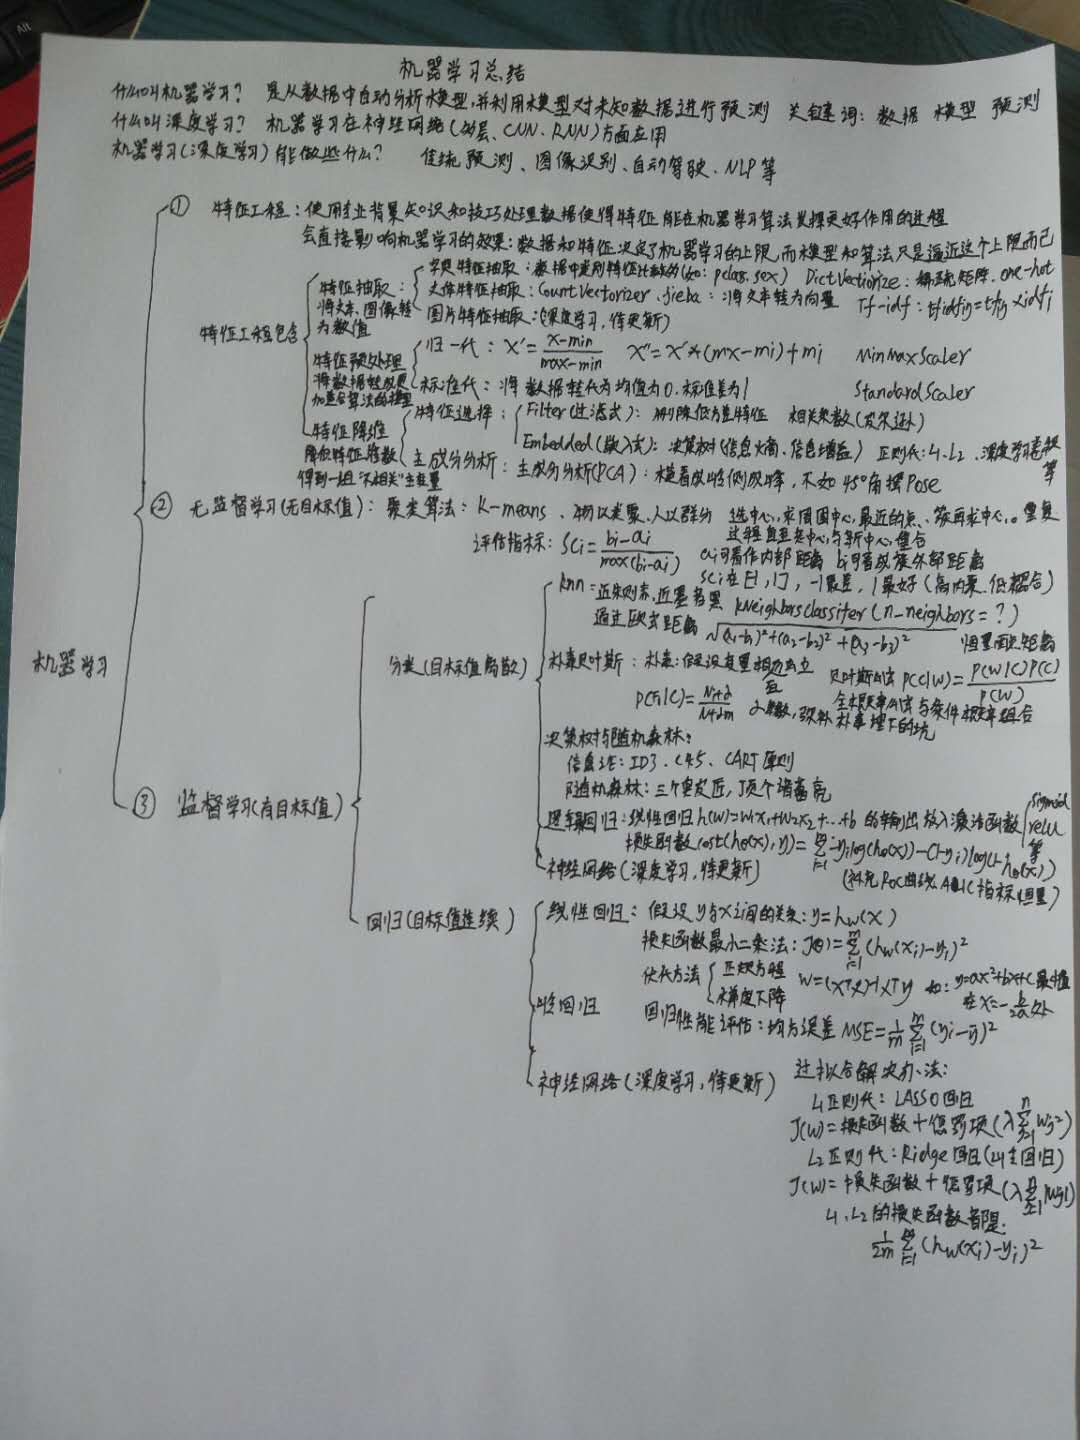 机器学习总结
什么叫机器学习? 是从数据中自动分析模型,并利用模型对未知数据进行预测 关键词: 数据 模型 预测
什么叫深度学习? 机器学习在神经网络(多层、CNN、RNN)方面应用
机器学习(深度学习)能做些什么? 传统预测、图像识别、自动驾驶、NLP等
① 特征工程: 使用专业背景知识和技巧处理数据使得特征能在机器学习算法发挥更好作用的过程
会直接影响机器学习的效果: 数据和特征决定了机器学习的上限,而模型和算法只是逼近这个上限而已
特征工程包含
特征抽取:
将文本、图像转
为数值
字典特征抽取: 数据中类别特征比较多(如: pclass.sex) DictVectorize: 稀疏矩阵、one-hot
文本特征抽取: CountVectorizer、jieba: 将文本转为向量 Tf-idf: tfidfij=tfij×idfi
图片特征抽取: (深度学习,待更新)
特征预处理
将数据转成更
加适合算法的模型
归一化: X'=(x-min)/(max-min) X''=X'*(mx-mi)+mi MinMaxScaler
标准化: 将数据转化为均值为0.标准差为1 StandardScaler
特征降维
降低特征维数
得到一组"不相关"主变量
特征选择: Filter(过滤式): 删除低方差特征 相关系数(皮尔逊)
Embedded(嵌入式): 决策树(信息熵、信息增益) 正则化: L1、L2、深度学习卷积等
主成分分析: 主成分分析(PCA): 横看成岭侧成峰,不如45°角摆Pose
② 无监督学习(无目标值): 聚类算法: K-means、物以类聚、人以群分 选中心,求周围中心,最近的点、簇再求中心。重复
过程直至类中心与新中心重合
评估指标: SCi=(bi-ai)/max(bi-ai) ai可看作内部距离 bi可看成簇外部距离
SCi在[-1,1], -1最差,1最好(高内聚、低耦合)
机器学习
③ 监督学习(有目标值)
分类(目标值离散)
knn=近朱则赤,近墨者黑 KNeighborsClassifer(n-neighbors=?)
通过欧式距离 √(a1-b1)²+(a2-b2)²+(a3-b3)² 衡量两点距离
朴素贝叶斯: 朴素: 假设变量相互独立 贝叶斯公式 P(C|W)=P(W|C)P(C)/P(W)
P(Fi|C)=(Ni+α)/(N+αm) α系数,弥补朴素埋下的坑 全概率公式与条件概率组合
决策树与随机森林:
信息论: ID3、C4.5、CART原则
随机森林: 三个臭皮匠,顶个诸葛亮
逻辑回归: 线性回归h(w)=w1x1+w2x2+...+b 的输出放入激活函数 sigmoid relu 等
损失函数cost(hθ(x),y)=∑i=1 m -yilog(hθ(x))-(1-yi)log(1-hθ(x))
(补充ROC曲线,AUC指标衡量)
神经网络(深度学习,待更新)
回归(目标值连续)
线性回归: 假设y与x之间的关系: y=hw(x)
损失函数最小二乘法: J(θ)=∑i=1 m (hw(xi)-yi)²
优化方法 正规方程 W=(XTX)-1XTy 如: y=ax²+bx+c最小值
梯度下降 在x=-b/2a处
岭回归
回归性能评估: 均方误差 MSE=1/m∑i=1 m (yi-ȳ)²
神经网络(深度学习,待更新)
过拟合解决办法:
L1正则化: LASSO回归
J(w)=损失函数+惩罚项(λ∑j=1 n wj²)
L2正则化: Ridge回归(岭回归)
J(w)=损失函数+惩罚项(λ∑j=1 n |wj|)
L1、L2的损失函数都是.
1/2m ∑i=1 m (hw(xi)-yi)²